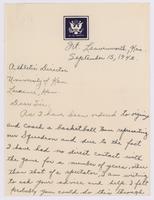 Ft. Leavenworth, Kan.
September 15, 1942
Athletic Director
University of Kan.
Lawrence, Kan.
Dear Sir:
As I have been ordered to organize
and coach a basketball team representing
my Squadron and due to the fact
I have had no direct contact with
the game for a number of years other
than that of a spectator, I am writing
to ask your advice and help. I felt
probably you could do this through